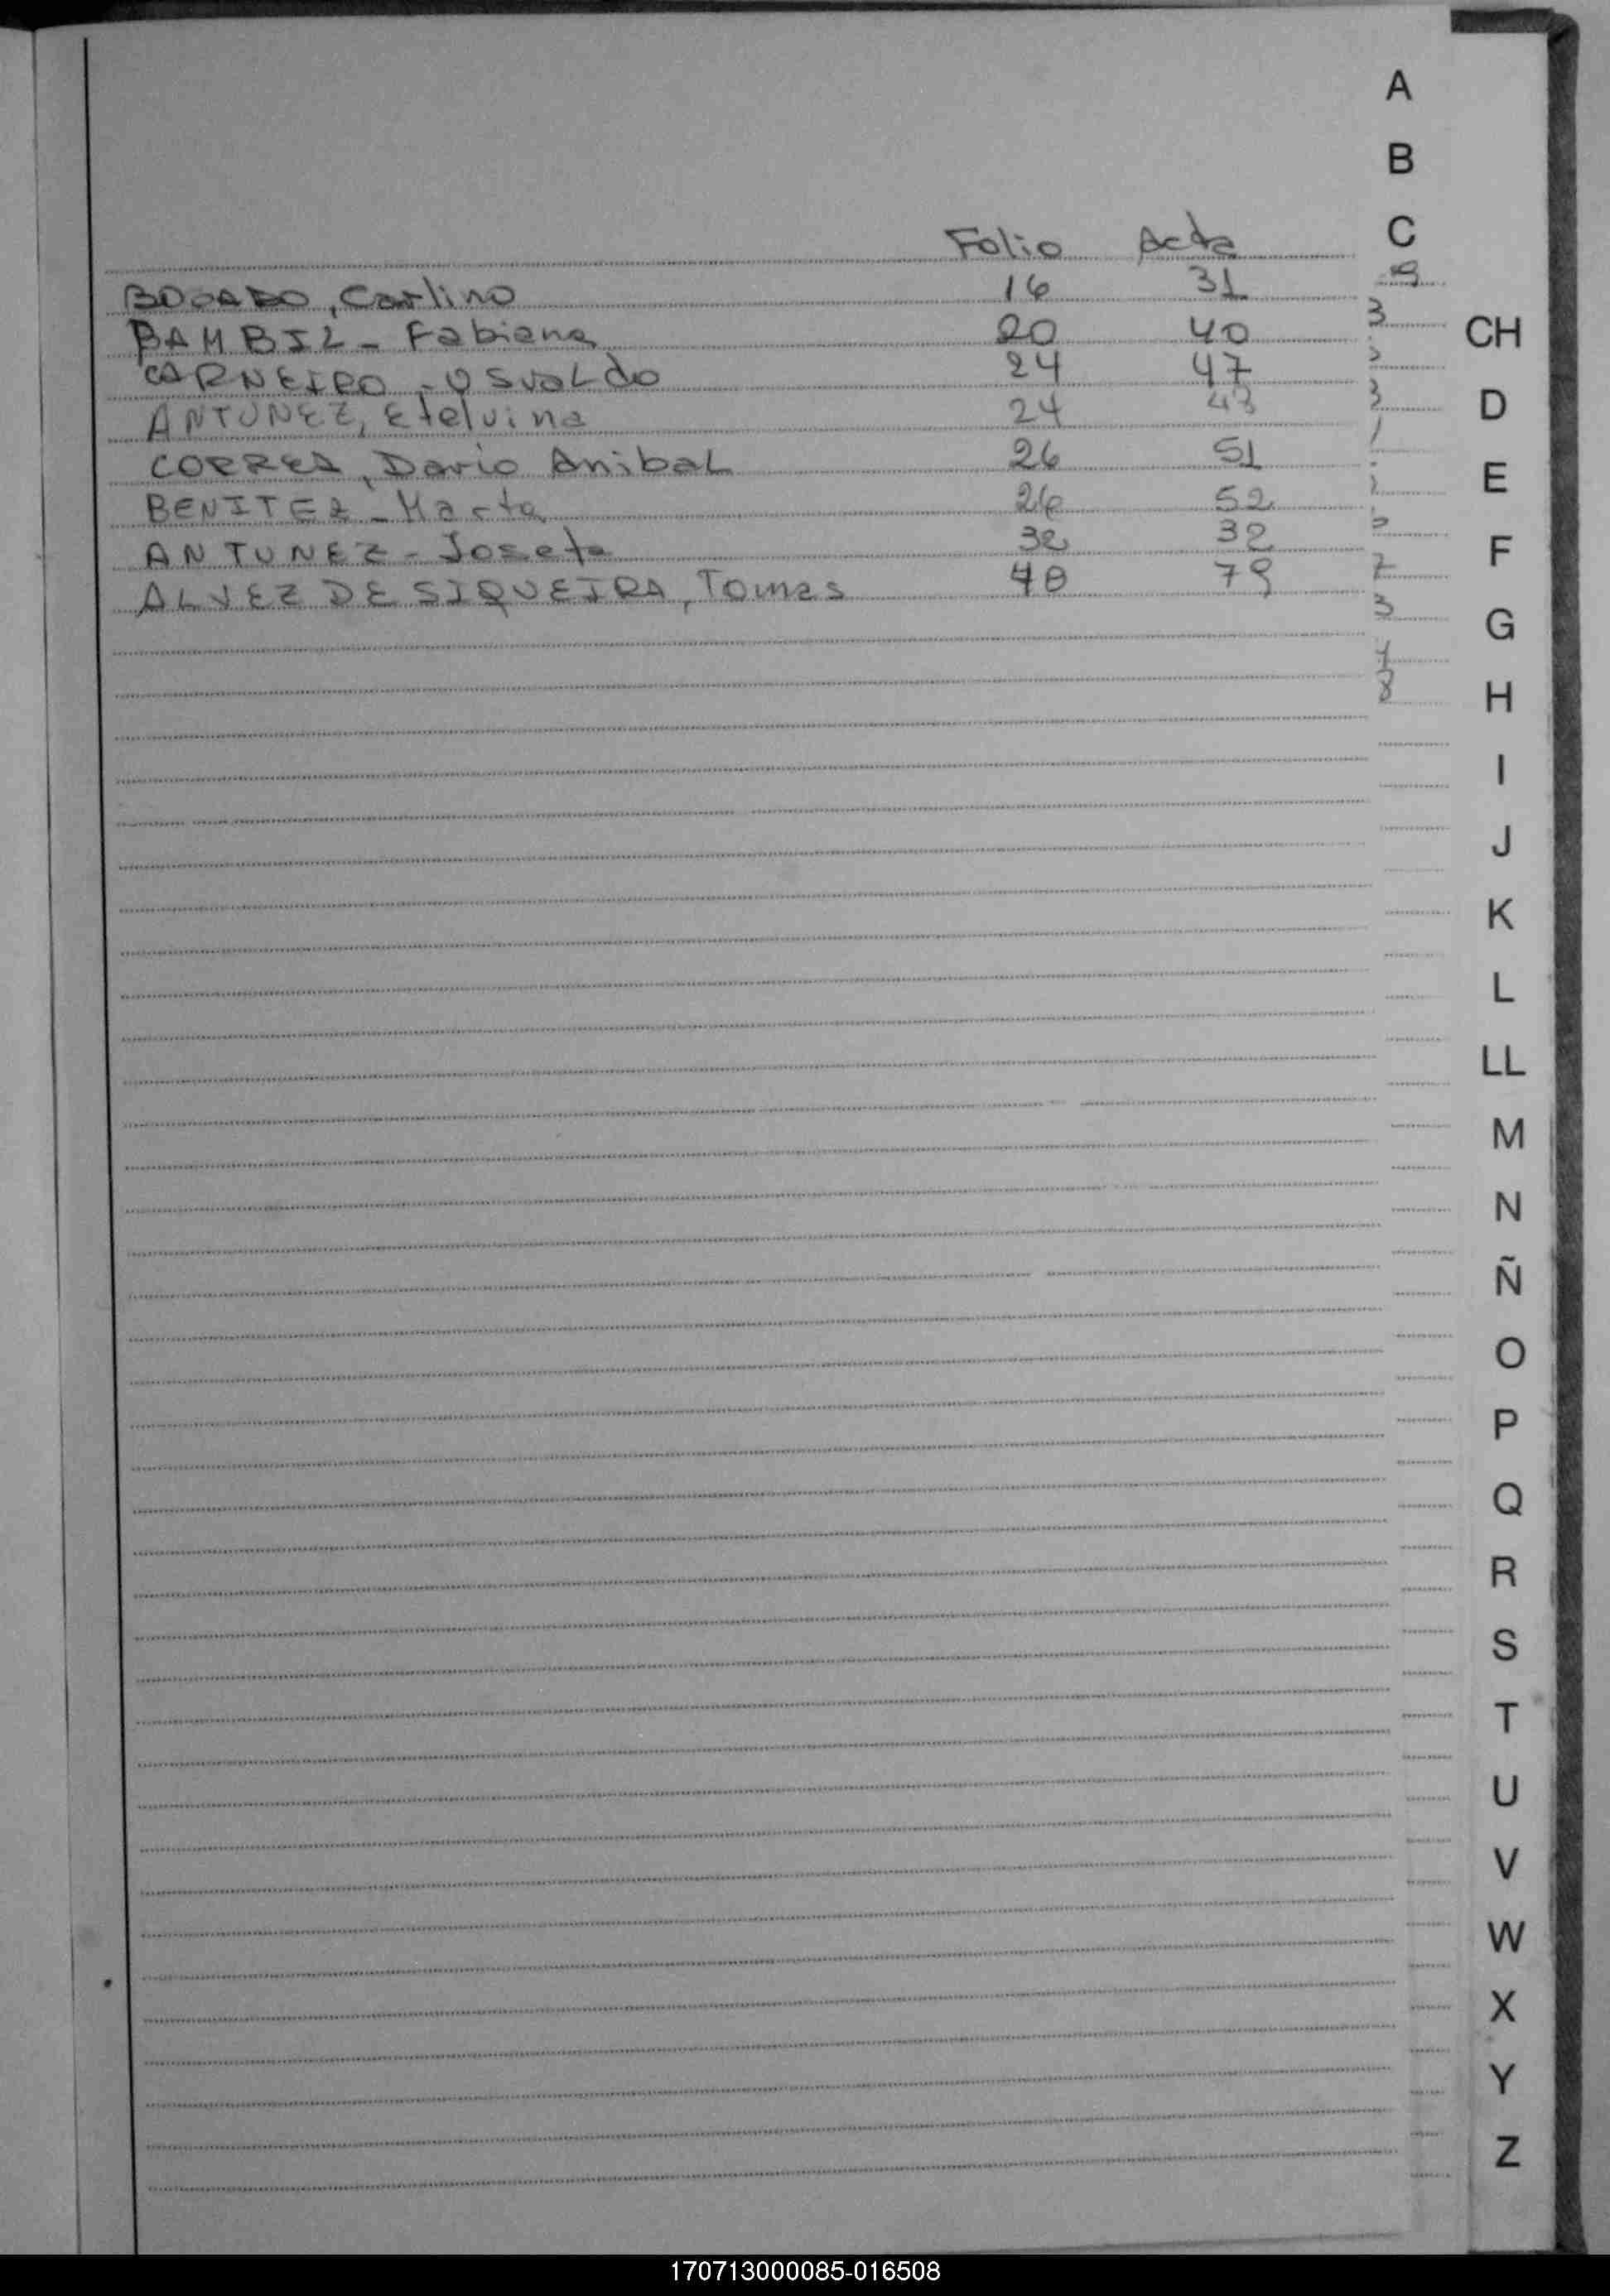 A
B
C
Folio Acta
BOGADO, Carlino 16 31
BAMBIL - Fabiana 20 40
CARNEIRO - Osvaldo 24 47
ANTUNEZ, Etelvina 24 43
CORREA, Dario Anibal 26 51
BENITEZ - Marta 26 52
ANTUNEZ - Josefa 32 32
ALVEZ DE SIQUEIRA, Tomas 40 79
3
3
7
3
8
CH
D
E
F
G
H
I
J
K
L
LL
M
N
Ñ
O
P
Q
R
S
T
U
V
W
X
Y
Z
170713000085-016508